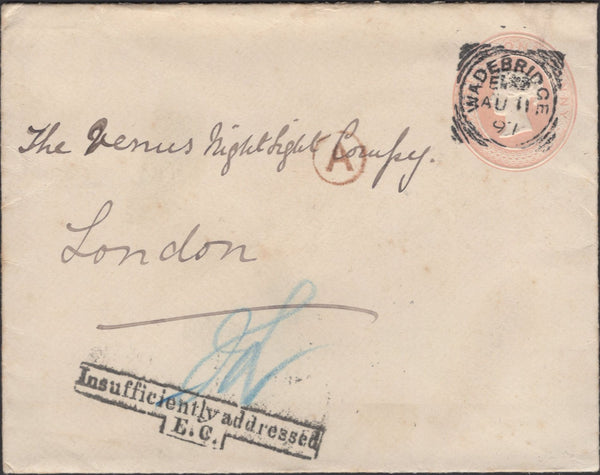 WADEBRIDGE
AU 11
97
The Venus NightLight Compy.
A
London
Insufficiently addressed
E.C.